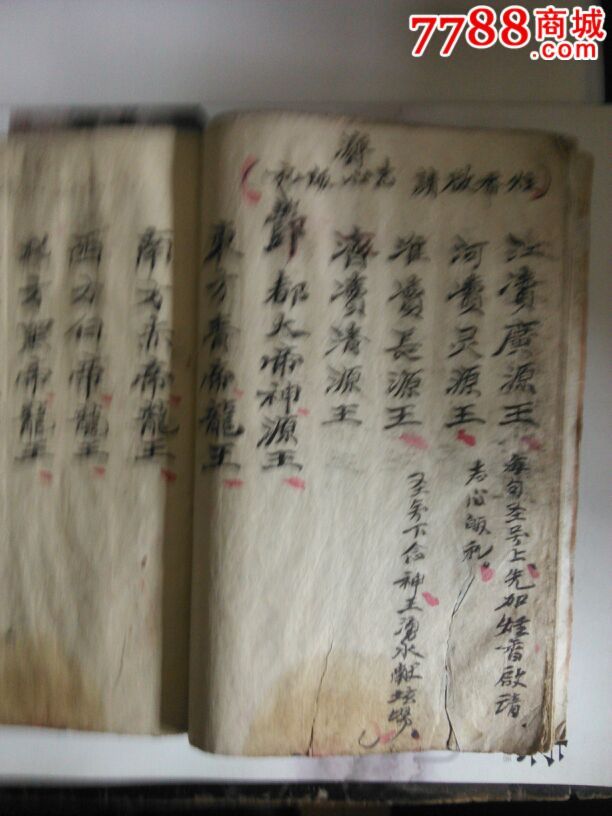 7788商城
.com
請啟香炷
江瀆廣源王
每句圣号上先加炷香啟請
河瀆灵源王
志心皈礼。
淮瀆長源王
圣号下念神王湧水献坛
濟瀆清源王
酆都大帝神源王
東方青帝龍王
南方赤帝龍王
西方白帝龍王
方黑帝龍王